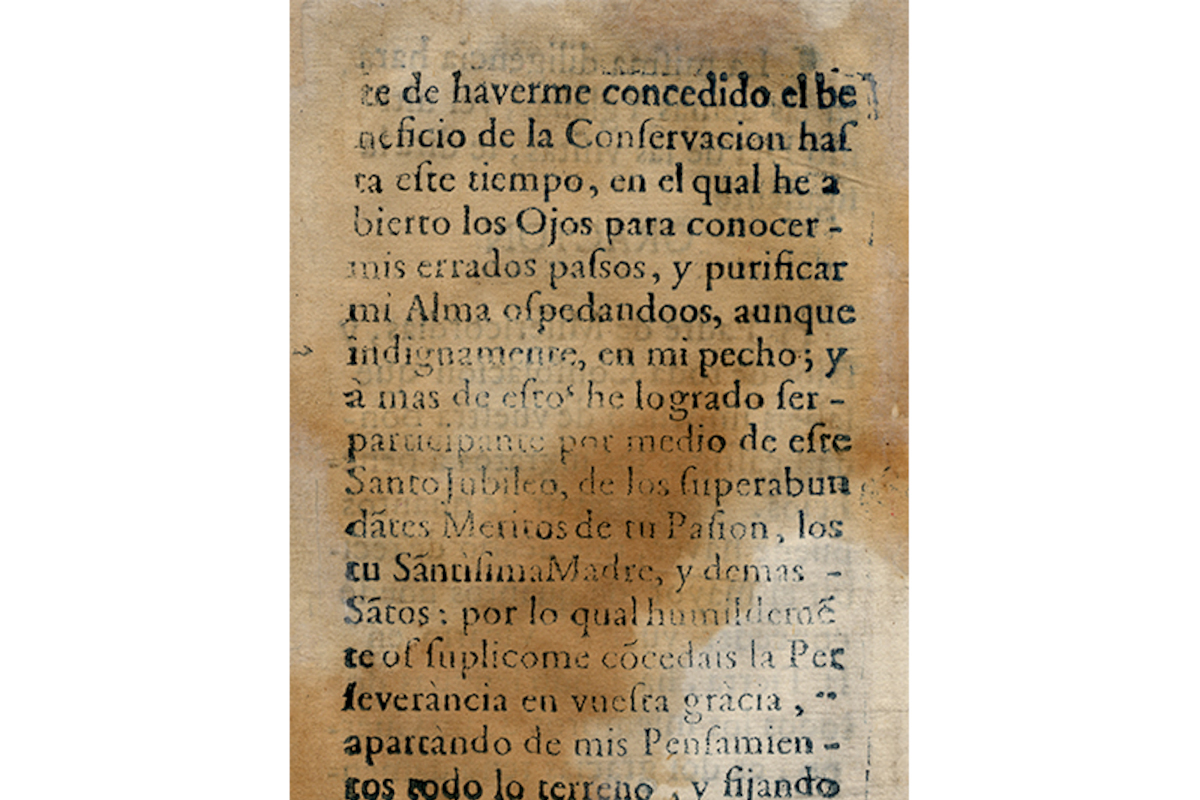 te de haverme concedido el be
neficio de la Conſervacion haſ
ta eſte tiempo, en el qual he a
bierto los Ojos para conocer -
mis errados paſsos, y purificar
mi Alma oſpedandoos, aunque
indignamente, en mi pecho; y
à mas de eſto he logrado ſer -
participante por medio de eſte
Santo Jubileo, de los ſuperabun
dãtes Meritos de tu Paſion, los
tu Sãntìſima Madre, y demas -
Sãtos: por lo qual humildemẽ
te oſ ſuplicome cõcedais la Per
ſeverància en vueſtra gràcia, --
apartàndo de mis Penſamien -
tos todo lo terreno, y fijando